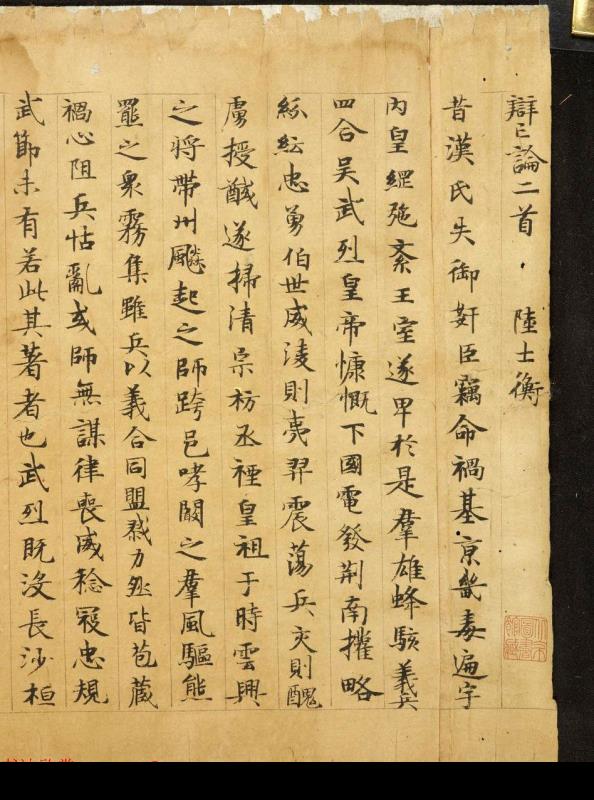 辯亡論二首 · 陸士衡
昔漢氏失御奸臣竊命禍基京畿毒遍宇
內皇綱弛紊王室遂卑於是羣雄蜂駭義兵
四合吳武烈皇帝慷慨下國電發荊南摧略
紛紜忠勇伯世威淩則夷羿震蕩兵交則醜
虜授馘遂掃清宗枋丞禋皇祖于時雲興
之將帶州飈起之師跨邑哮闞之羣風驅熊
羆之衆霧集雖兵以義合同盟戮力然皆苞藏
禍心阻兵怙亂或師無謀律喪威稔寇忠規
武節未有若此其著者也武烈既沒長沙桓